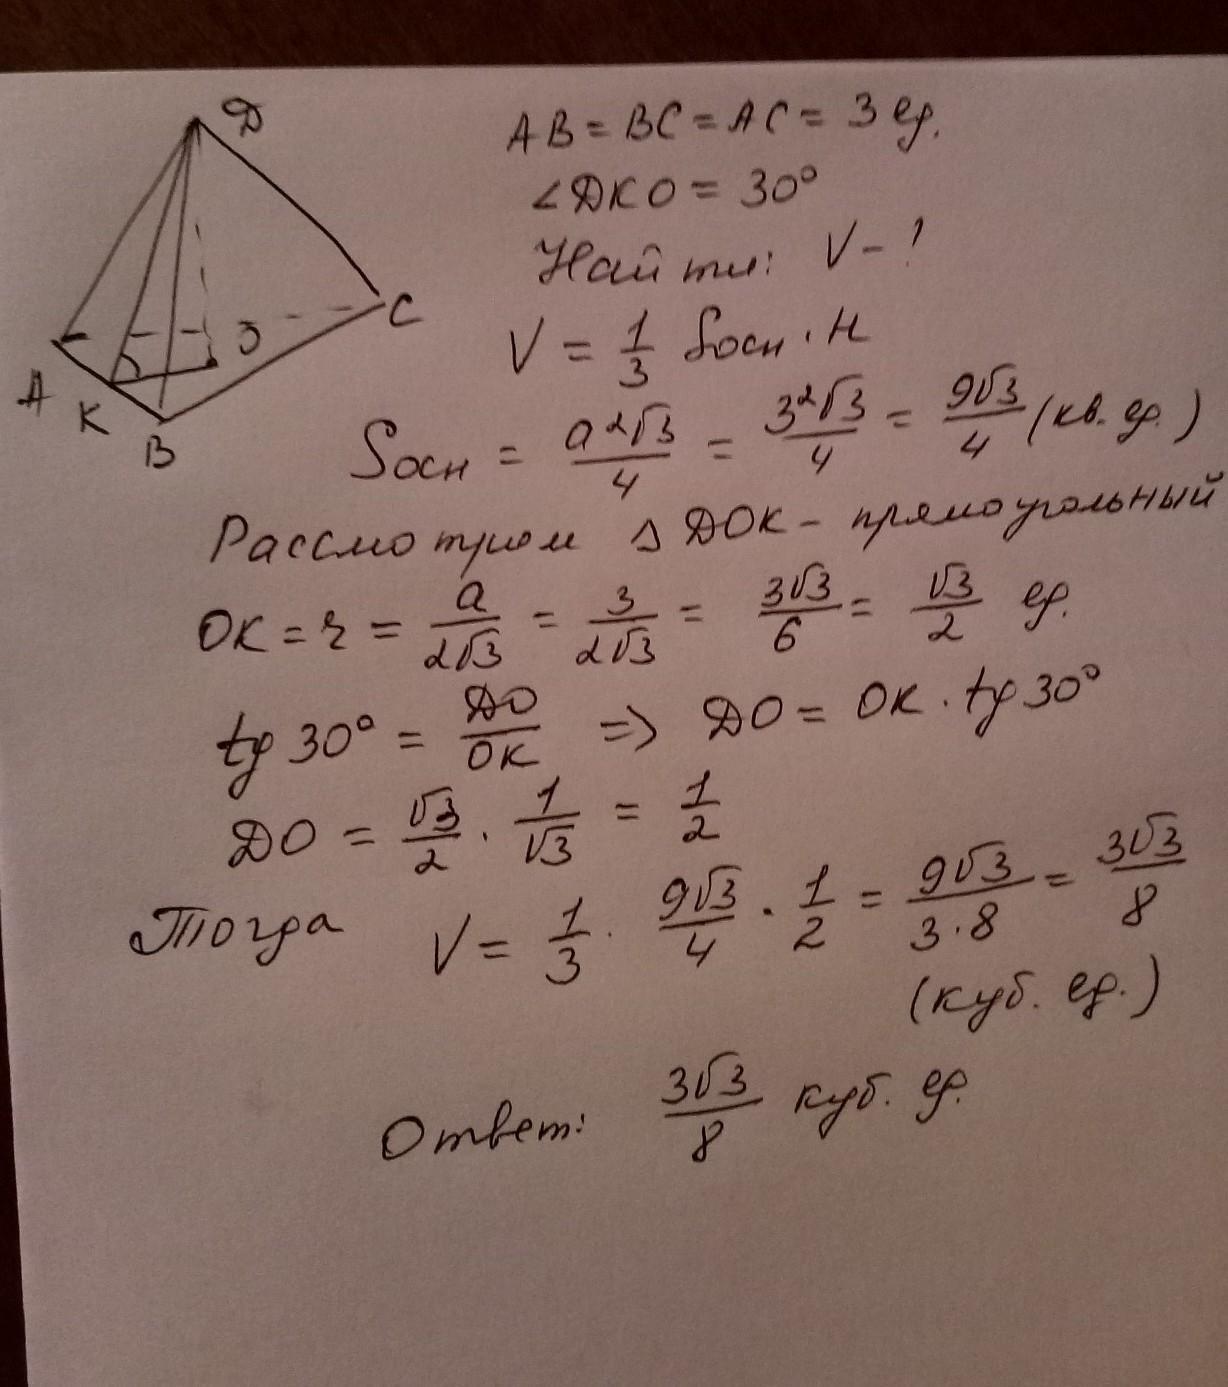 Д
A
K
B
O
C
AB = BC = AC = 3 ед.
∠ДКО = 30°
Найти: V - ?
V = 1/3 Sосн · H
Sосн = a²√3/4 = 3²√3/4 = 9√3/4 (кв. ед.)
Рассмотрим △ ДОК - прямоугольный
OK = r = a/2√3 = 3/2√3 = 3√3/6 = √3/2 ед.
tg 30° = ДО/ОК => ДО = ОК · tg 30°
ДО = √3/2 · 1/√3 = 1/2
Тогда V = 1/3 · 9√3/4 · 1/2 = 9√3/3·8 = 3√3/8
(куб. ед.)
Ответ: 3√3/8 куб. ед.